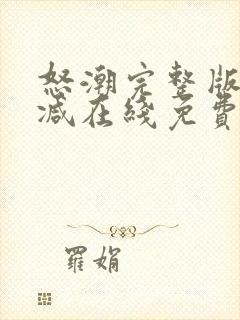 怒潮完整版
减在綫免費
羅娟